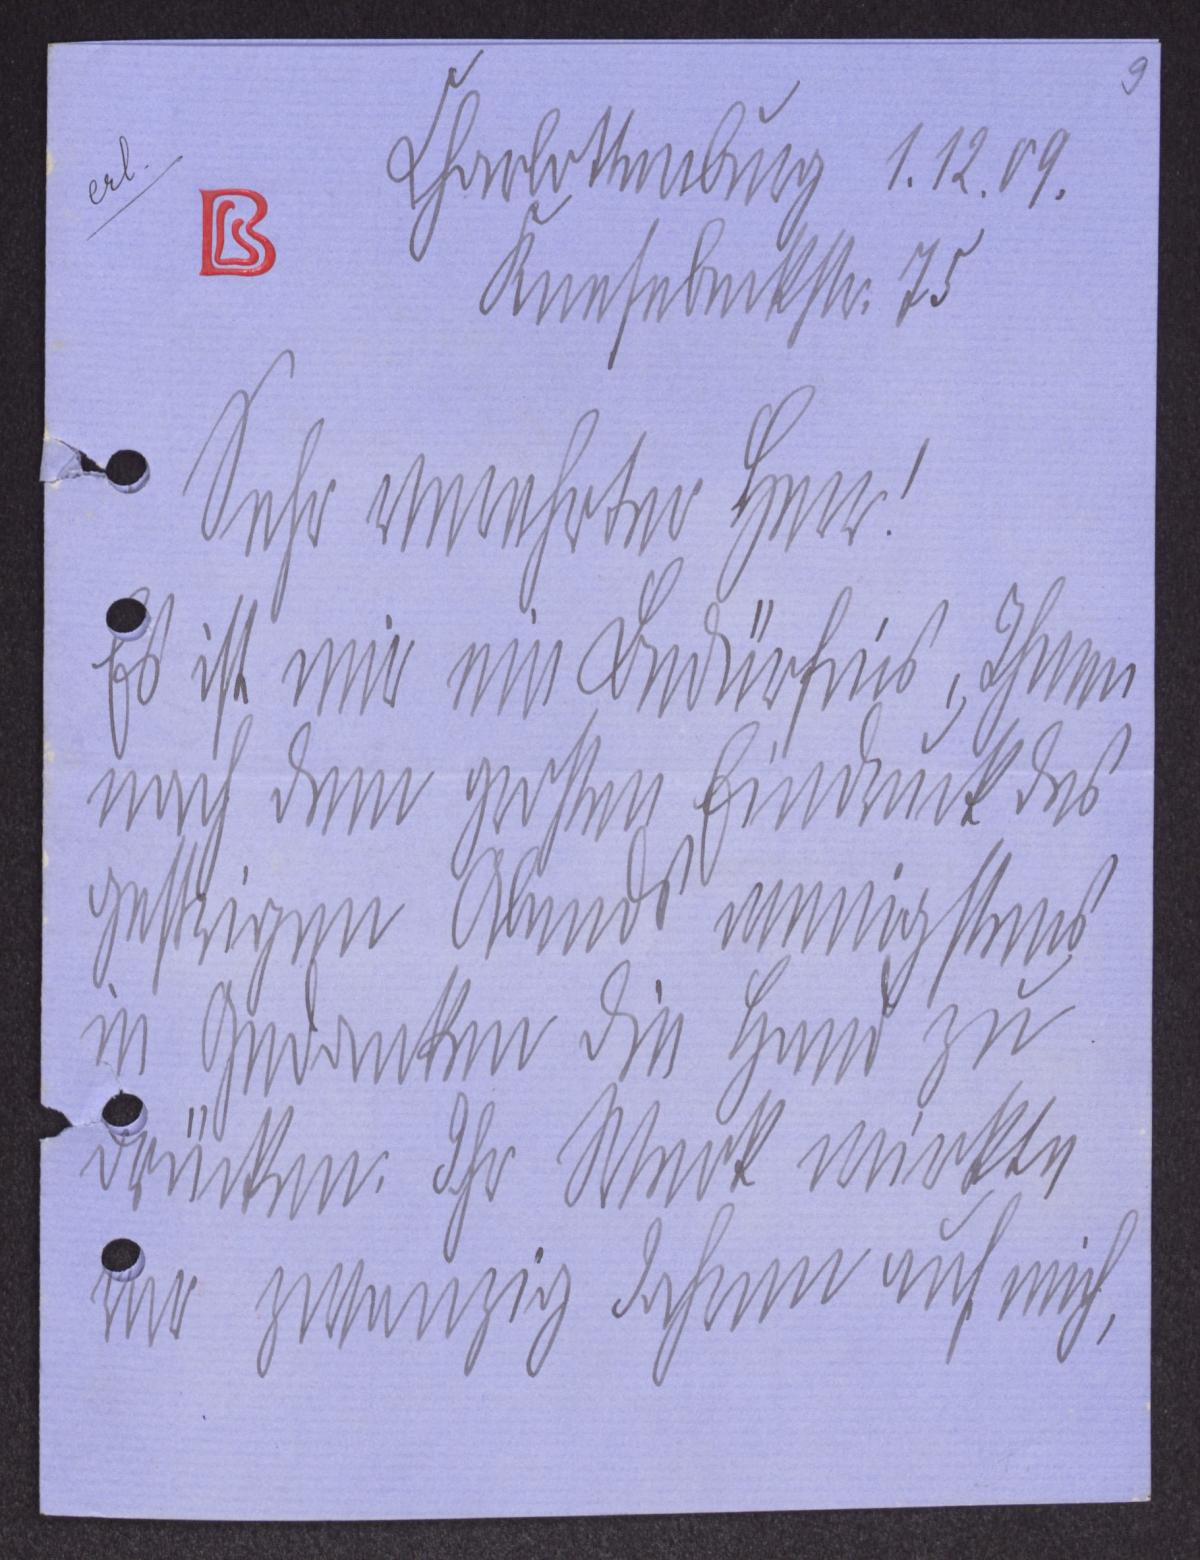 9
erl.
Charlottenburg 1.12.09.
Knesebeckstr. 75
Sehr verehrter Herr!
Es ist mir ein Bedürfnis, Ihnen
nach dem großen Eindruck des
gestrigen Abends wenigstens
in Gedanken die Hand zu
drücken. Ihr Werk wirkte
vor zwanzig Jahren auf mich,